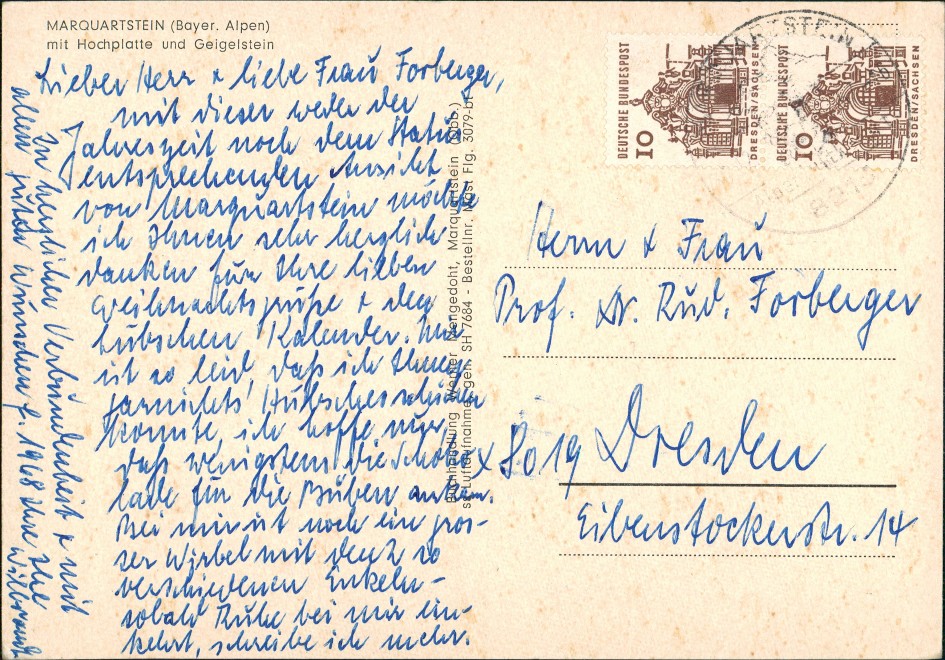 MARQUARTSTEIN (Bayer. Alpen)
mit Hochplatte und Geigelstein
Lieber Herr + liebe Frau Forberger,
mit dieser weder der
Jahreszeit noch dem Status
entsprechenden Ansicht
von Marquartstein möchte
ich Ihnen sehr herzlich
danken für Ihre lieben
Weihnachtsgrüße + den
hübschen Kalender. Mir
ist so leid, daß ich Ihnen
garnichts Hübsches schicken
konnte, ich hoffe nur,
daß wenigstens die Schoko-
lade für die Buben ankam.
Bei mir ist noch ein gros-
ser Wirbel mit den 2 so
verschiedenen Enkeln -
sobald Ruhe bei mir ein-
kehrt, schreibe ich mehr.
In herzlicher Verbundenheit + mit
allen guten Wünschen f. 1968 Ihre
Buchhandlung Werner Mengedoht, Marquartstein (Obb.)
Luftaufnahme SH 7684 - Bestellnr. Mgst Flg. 3079-bf
DEUTSCHE BUNDESPOST
10
DRESDEN/SACHSEN
DEUTSCHE BUNDESPOST
10
DRESDEN/SACHSEN
MARQUARTSTEIN
Herrn + Frau
Prof. Dr. Rud. Forberger
x 8019 Dresden
Eibenstockerstr. 14